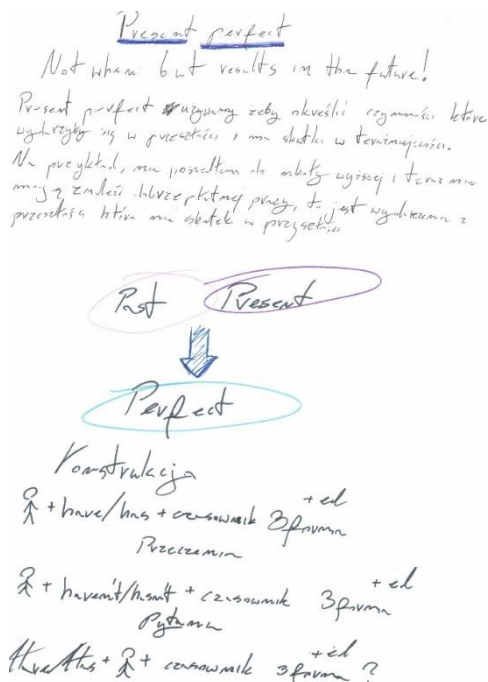 Present perfect
Not when but results in the future!
Present perfect używamy żeby określić czynności które
wydarzyły się w przeszłości i ma skutki w teraźniejszości.
Na przykład, nie poszedłam do szkoły wyższej i teraz nie
mogę znaleźć dobrze płatnej pracy, to jest wydarzenie z
przeszłości która ma skutek w przyszłości
Past Present
Perfect
Konstrukcja
+ have/has + czasownik 3 forma + ed
Przeczenia
+ haven't/hasn't + czasownik 3 forma + ed
Pytania
Have/Has + + czasownik 3 forma + ed ?